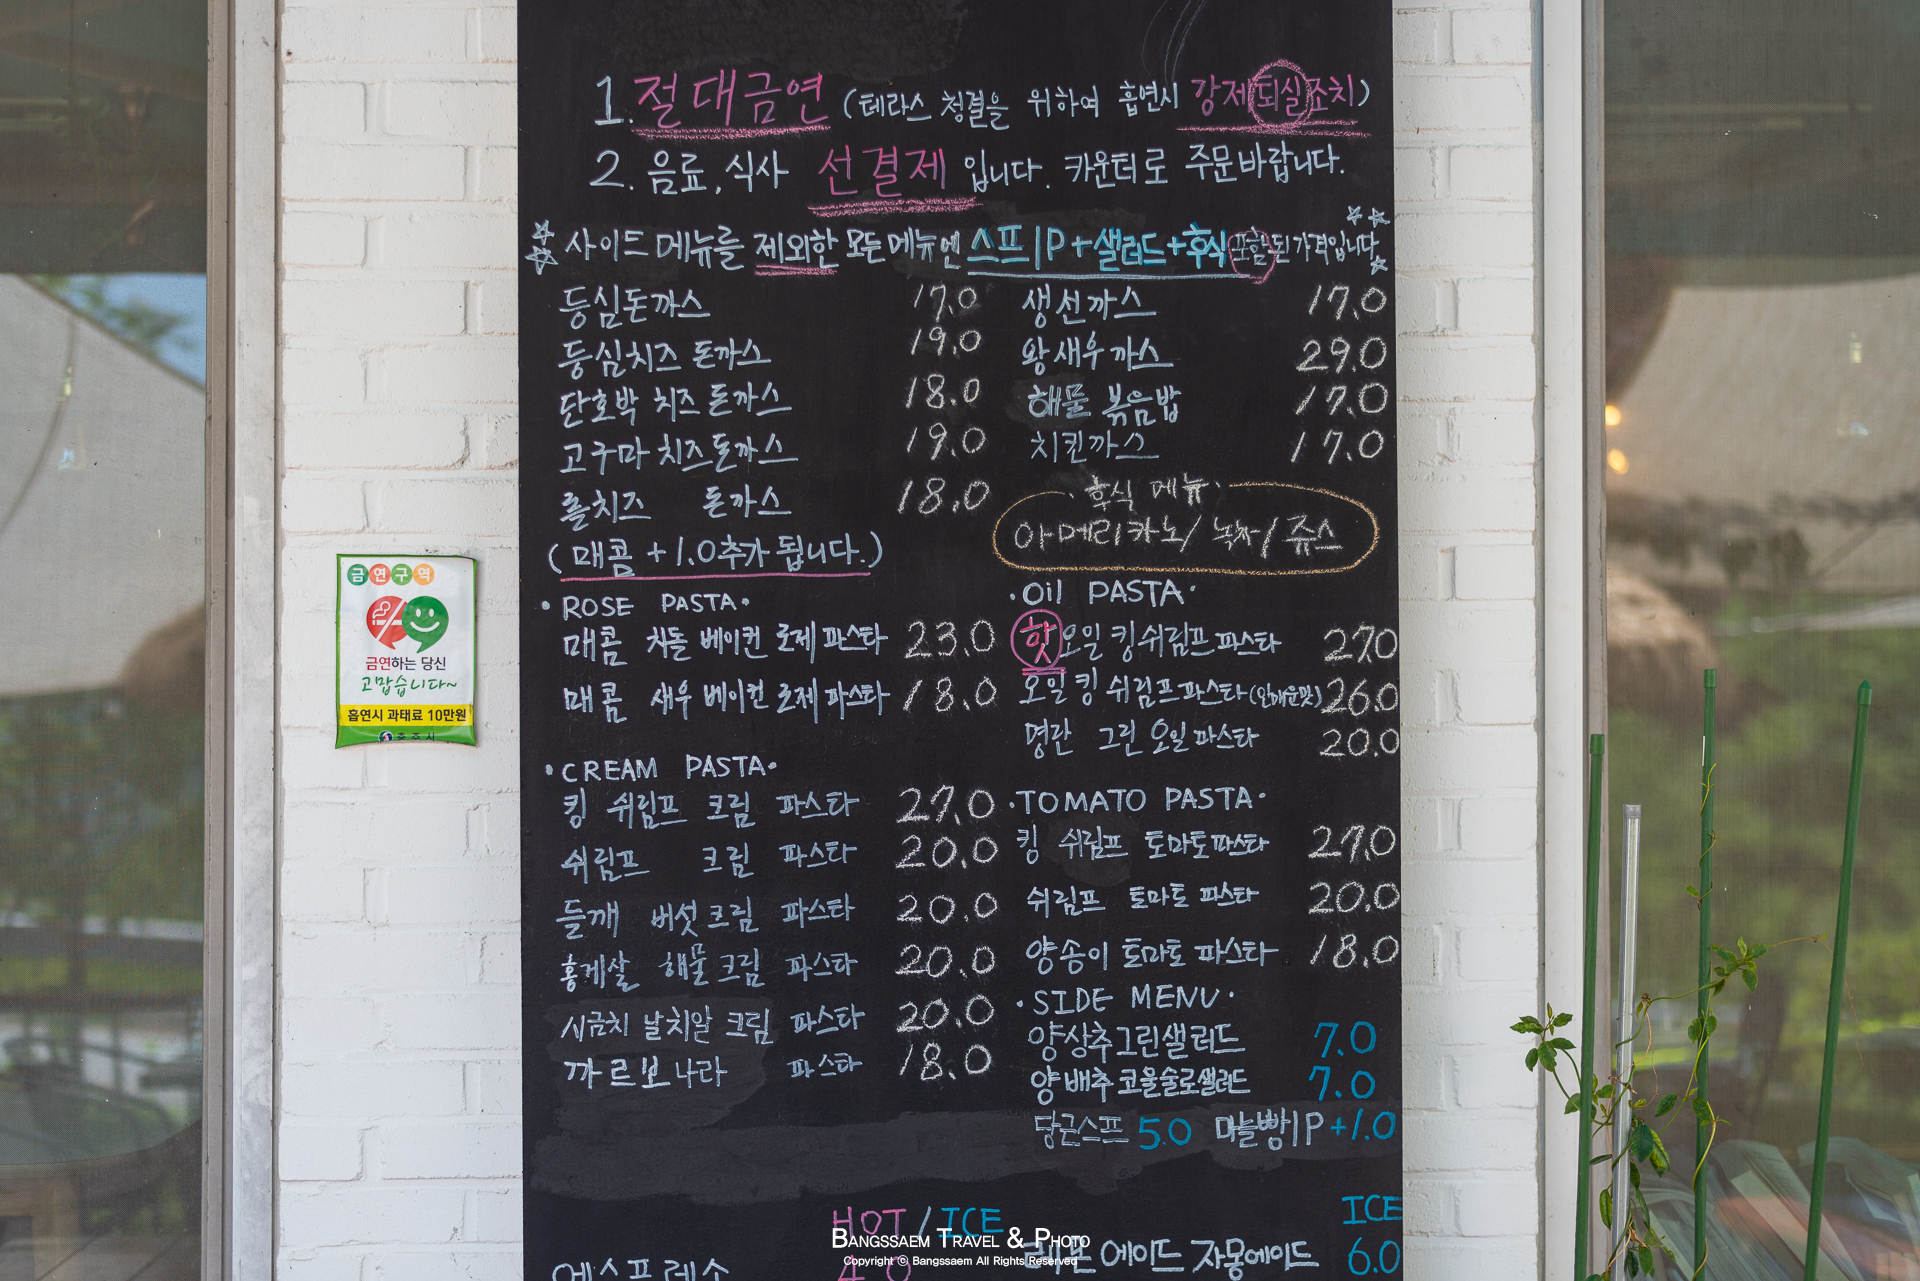 1. 절대금연 (테라스 청결을 위하여 흡연시 강제퇴실조치)
2. 음료, 식사 선결제 입니다. 카운터로 주문바랍니다.
사이드 메뉴를 제외한 모든메뉴엔 스프1P+샐러드+후식 포함된 가격입니다.
등심돈까스 17.0
등심치즈 돈까스 19.0
단호박 치즈돈까스 18.0
고구마 치즈돈까스 19.0
롤치즈 돈까스 18.0
(매콤 +1.0추가 됩니다.)
생선까스 17.0
왕새우까스 29.0
해물 볶음밥 17.0
치킨까스 17.0
·후식 메뉴·
아메리카노/녹차/쥬스
·ROSE PASTA·
매콤 차돌 베이컨 로제파스타 23.0
매콤 새우 베이컨 로제파스타 18.0
·CREAM PASTA·
킹 쉬림프 크림 파스타 27.0
쉬림프 크림 파스타 20.0
들깨 버섯크림 파스타 20.0
홍게살 해물크림 파스타 20.0
시금치 날치알 크림 파스타 20.0
까르보나라 파스타 18.0
·Oil PASTA·
핫 오일 킹쉬림프파스타 27.0
오일 킹 쉬림프파스타(안매운맛) 26.0
명란 그린 오일파스타 20.0
·TOMATO PASTA·
킹 쉬림프 토마토파스타 27.0
쉬림프 토마토 파스타 20.0
양송이 토마토 파스타 18.0
·SIDE MENU·
양상추그린샐러드 7.0
양배추 코울슬로샐러드 7.0
당근스프 5.0 마늘빵1P +1.0
HOT/ICE
에스프레소 4.0
ICE
레몬에이드 자몽에이드 6.0
금연구역
금연하는 당신
고맙습니다~
흡연시 과태료 10만원
충주시
BANGSSAEM TRAVEL & PHOTO
Copyright ⓒ Bangssaem All Rights Reserved